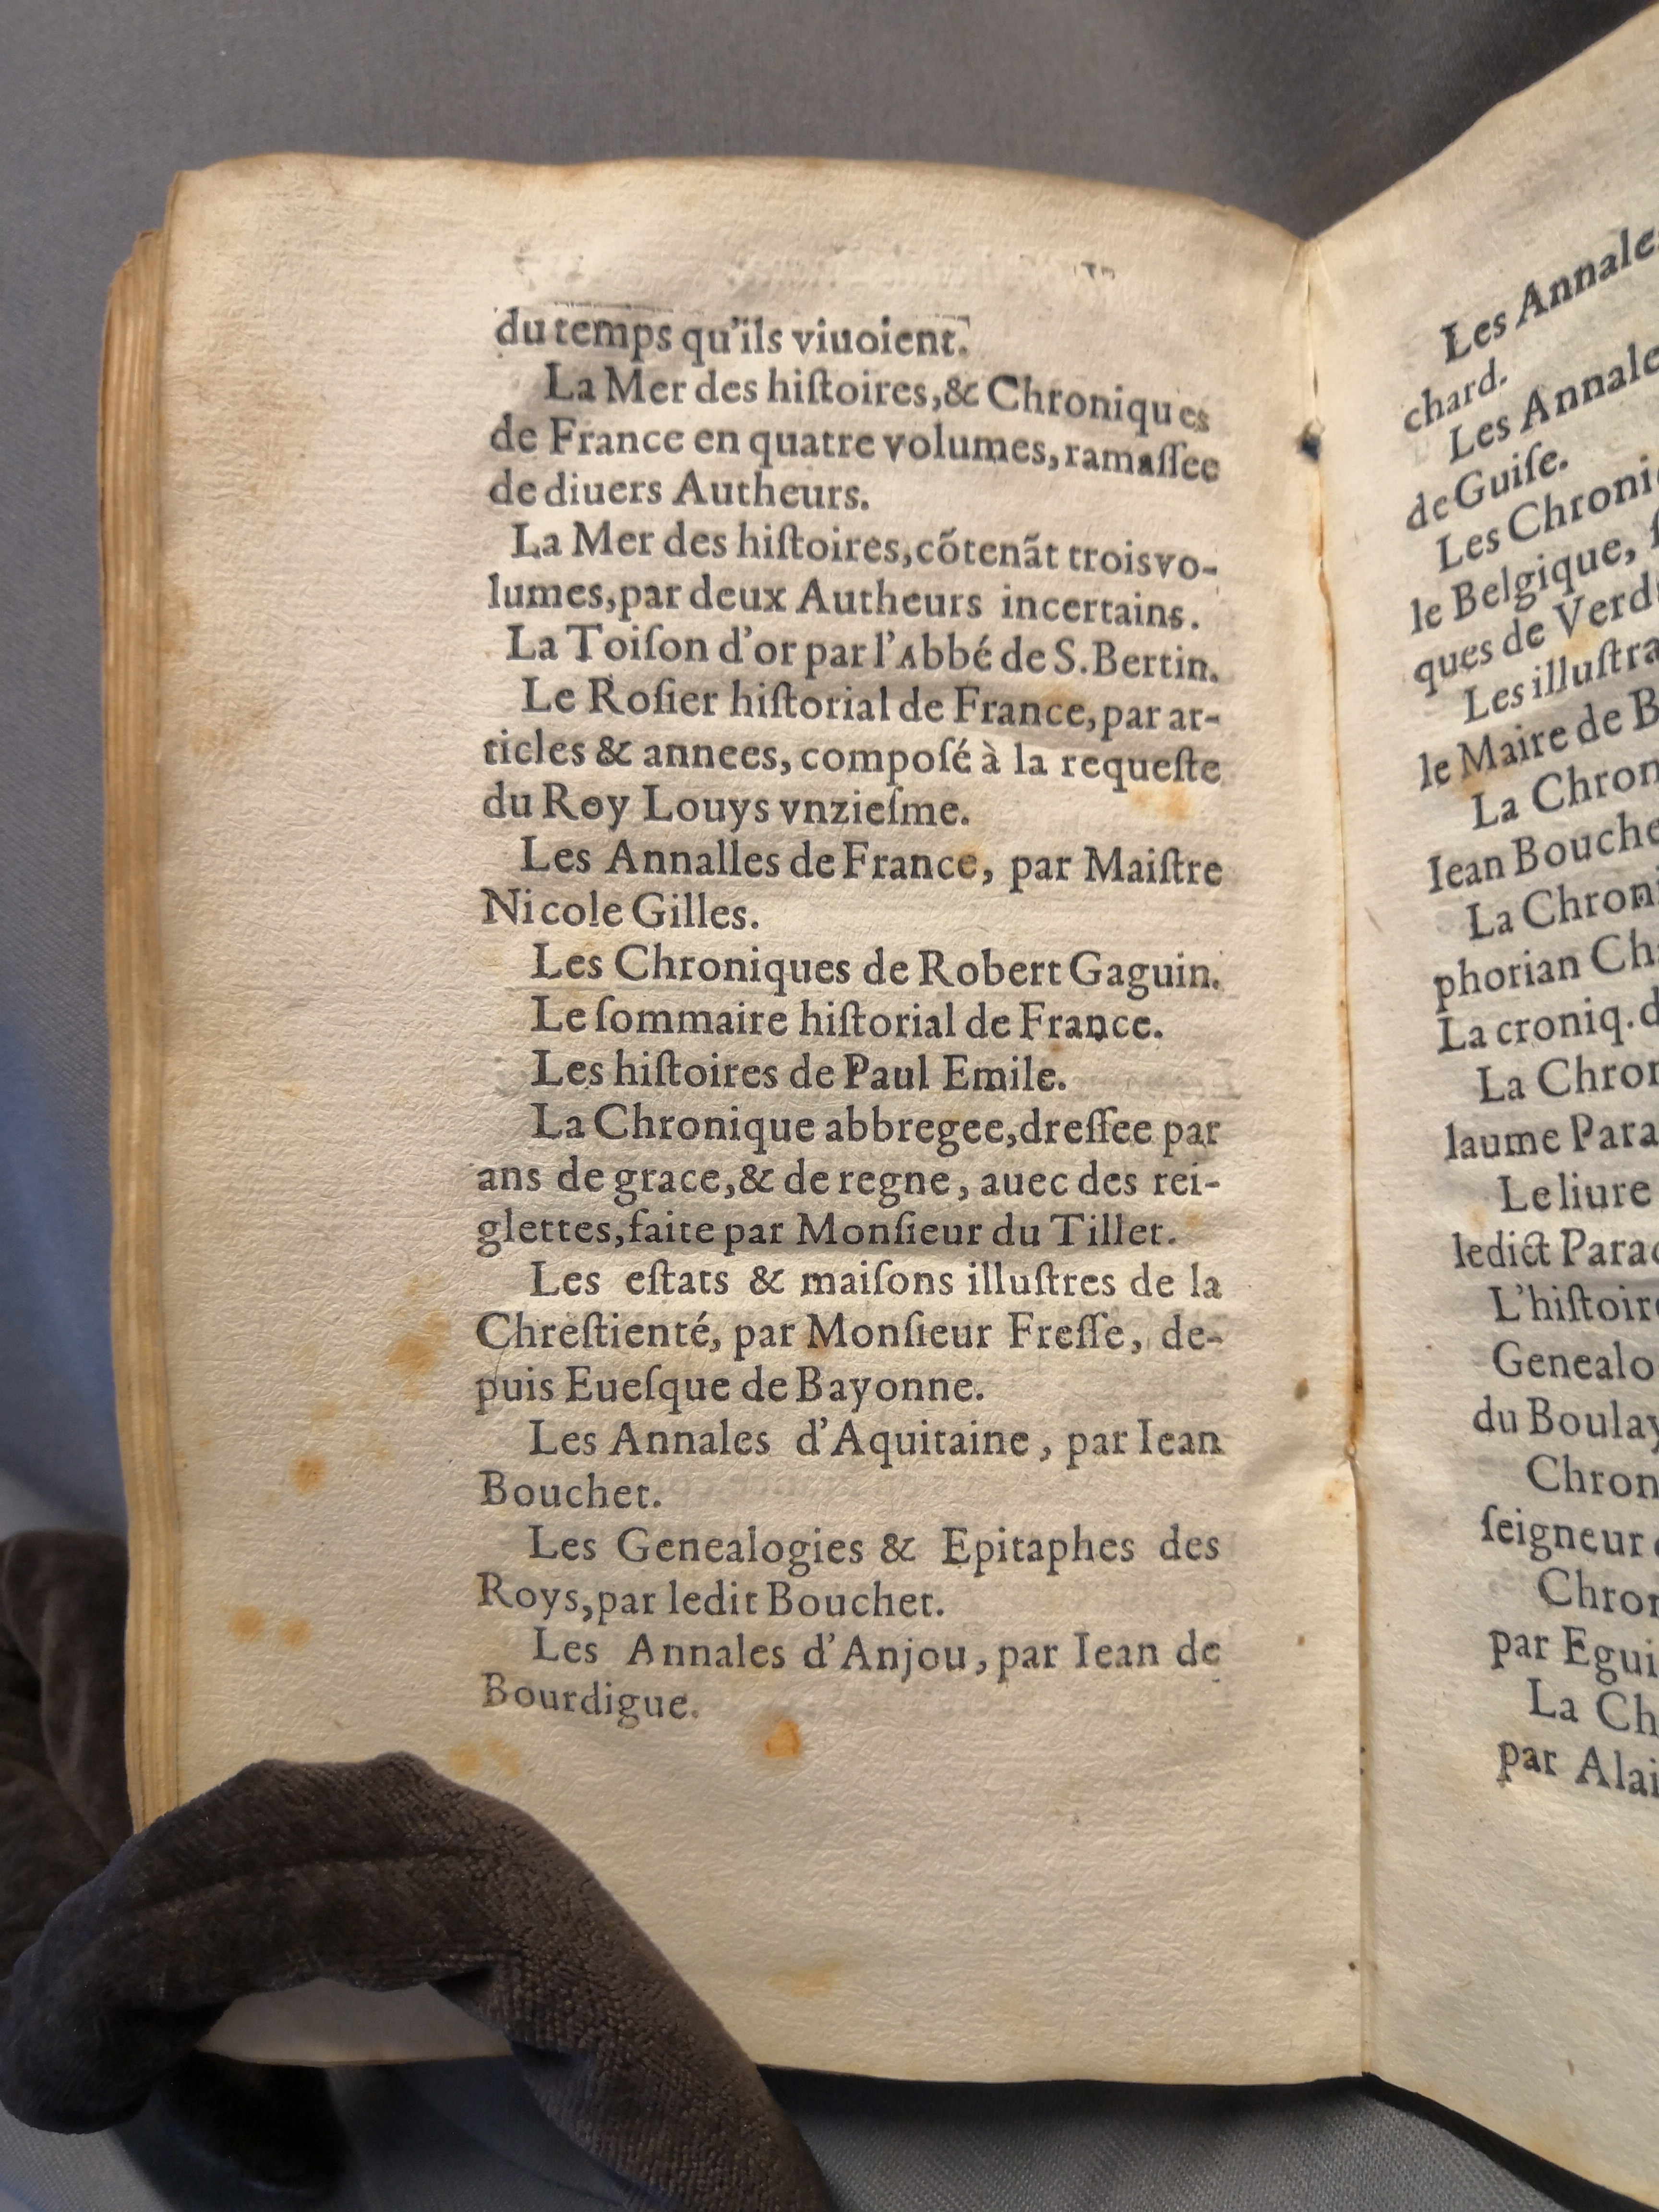 du temps qu'ils viuoient.
La Mer des hiſtoires,& Chroniques
de France en quatre volumes, ramaſſee
de diuers Autheurs.
La Mer des hiſtoires, cõtenãt trois vo-
lumes, par deux Autheurs incertains.
La Toiſon d'or par l'Abbé de S. Bertin.
Le Roſier hiſtorial de France, par ar-
ticles & annees, compoſé à la requeſte
du Roy Louys vnzieſme.
Les Annalles de France, par Maiſtre
Nicole Gilles.
Les Chroniques de Robert Gaguin.
Le ſommaire hiſtorial de France.
Les hiſtoires de Paul Emile.
La Chronique abbregee, dreſſee par
ans de grace,& de regne, auec des rei-
glettes, faite par Monſieur du Tillet.
Les eſtats & maiſons illuſtres de la
Chreſtienté, par Monſieur Freſſe, de-
puis Eueſque de Bayonne.
Les Annales d'Aquitaine, par Iean
Bouchet.
Les Genealogies & Epitaphes des
Roys, par ledit Bouchet.
Les Annales d'Anjou, par Iean de
Bourdigue.
Les Annales
chard.
Les Annale
de Guiſe.
Les Chroni
le Belgique,
ques de Verd
Les illuſtra
le Maire de B
La Chron
Iean Bouche
La Chroni
phorian Ch
La croniq. d
La Chron
laume Para
Le liure
ledict Parad
L'hiſtoire
Genealo
du Boulay
Chron
ſeigneur
Chron
par Egui
La Ch
par Alai